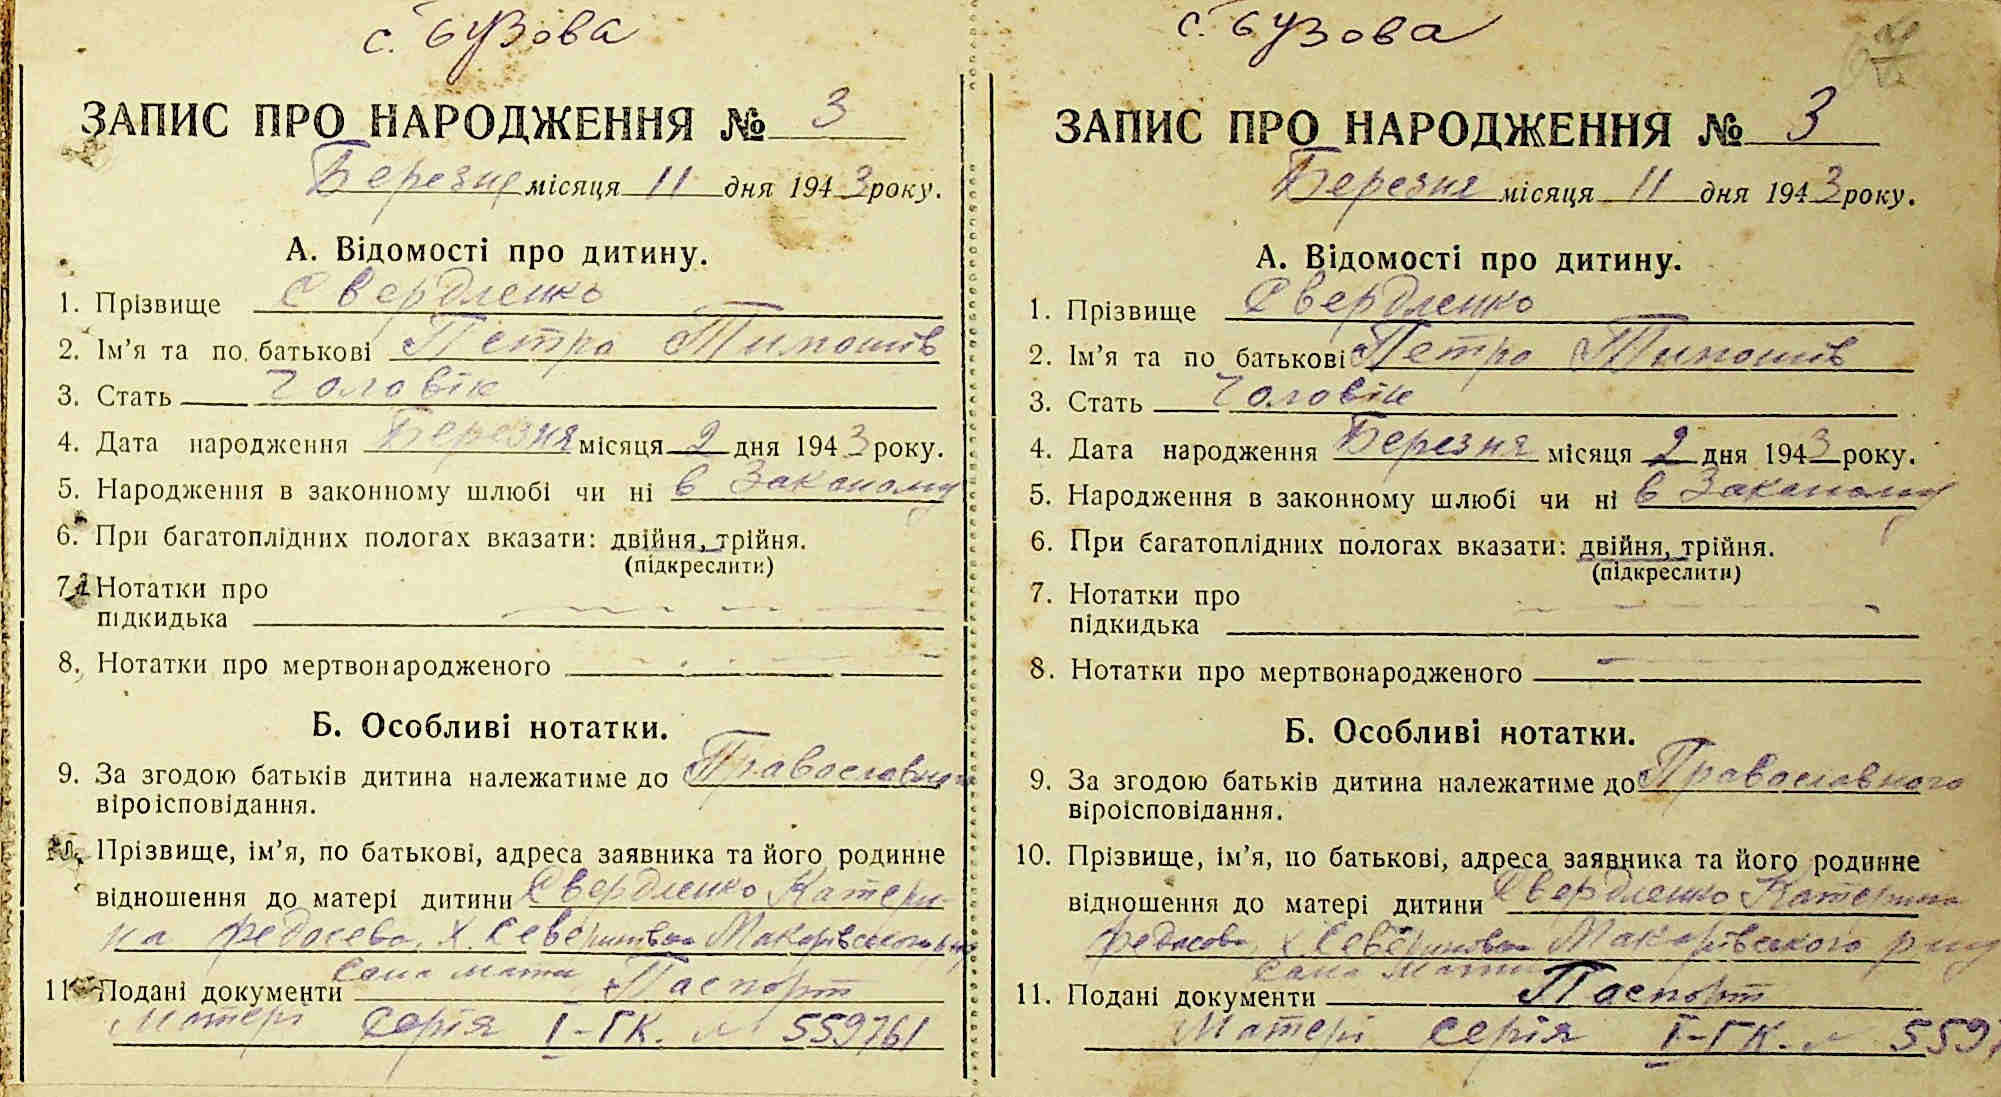 с. Бузова
ЗАПИС ПРО НАРОДЖЕННЯ № 3
Березня місяця 11 дня 1943 року.
А. Відомості про дитину.
1. Прізвище Свердленко
2. Ім'я та по батькові Петро Тимошів
3. Стать Чоловік
4. Дата народження Березня місяця 2 дня 1943 року.
5. Народження в законному шлюбі чи ні в Законому
6. При багатоплідних пологах вказати: двійня, трійня.
(підкреслити)
7. Нотатки про
підкидька
8. Нотатки про мертвонародженого
Б. Особливі нотатки.
9. За згодою батьків дитина належатиме до Православного
віроісповідання.
10. Прізвище, ім'я, по батькові, адреса заявника та його родинне
відношення до матері дитини Свердленко Катери-
на Федосева, х. Северинівка Макарівського р-ну
сама мати
11. Подані документи Паспорт
Матері серія I-ГК. № 559761
с. Бузова
ЗАПИС ПРО НАРОДЖЕННЯ № 3
Березня місяця 11 дня 1943 року.
А. Відомості про дитину.
1. Прізвище Свердленко
2. Ім'я та по батькові Петро Тимошів
3. Стать Чоловік
4. Дата народження Березня місяця 2 дня 1943 року.
5. Народження в законному шлюбі чи ні в Законому
6. При багатоплідних пологах вказати: двійня, трійня.
(підкреслити)
7. Нотатки про
підкидька
8. Нотатки про мертвонародженого
Б. Особливі нотатки.
9. За згодою батьків дитина належатиме до Православного
віроісповідання.
10. Прізвище, ім'я, по батькові, адреса заявника та його родинне
відношення до матері дитини Свердленко Катерина
Федосова, х. Севериновка Макарівського р-ну
сама Мати
11. Подані документи Паспорт
Матері серія I-ГК. № 5597